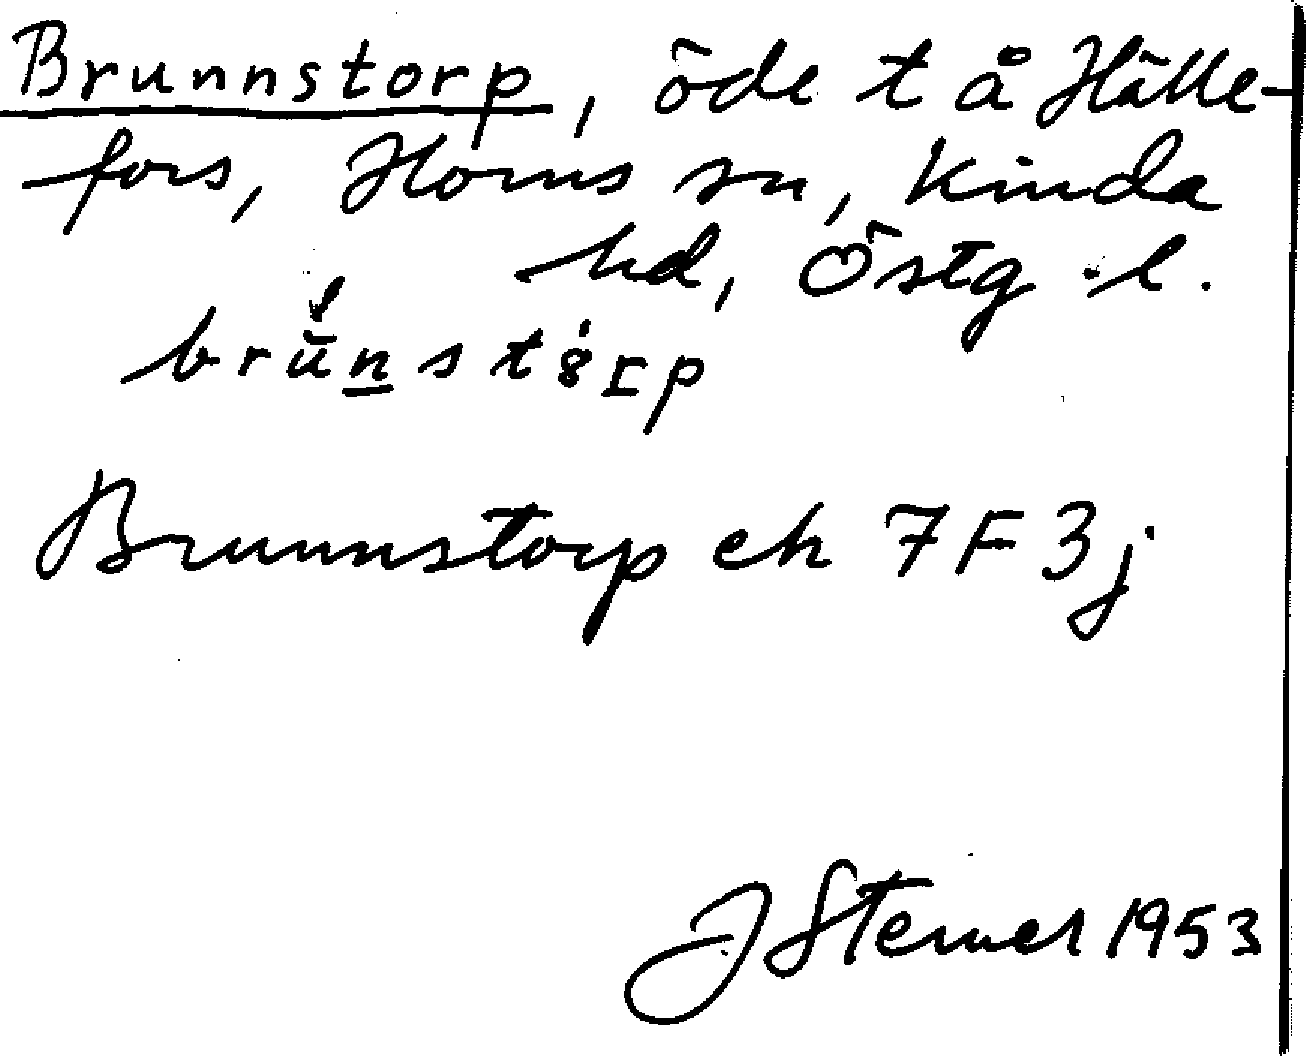 Brunnstorp, öde t å Hälle-
fors, Horns sn, Kinda
hd, Östg l.
Brunnstorp ek 7F3j
J Sterner 1953